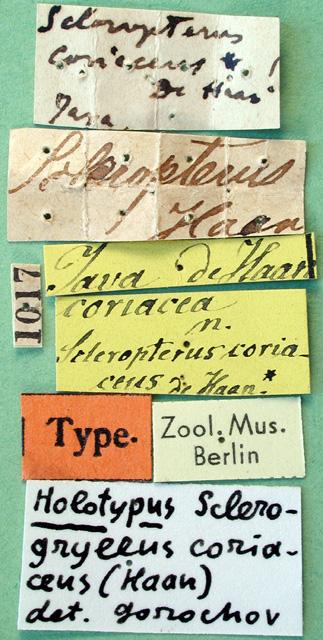 Scleropterus
coriaceus * !
De Haan
Java
Scleropterus
! Haan
Java de Haan
1017
coriacea
n.
Scleropterus coria-
ceus de Haan. *
Type.
Zool. Mus.
Berlin
Holotypus Sclero-
gryllus coria-
ceus (Haan)
det. Gorochov